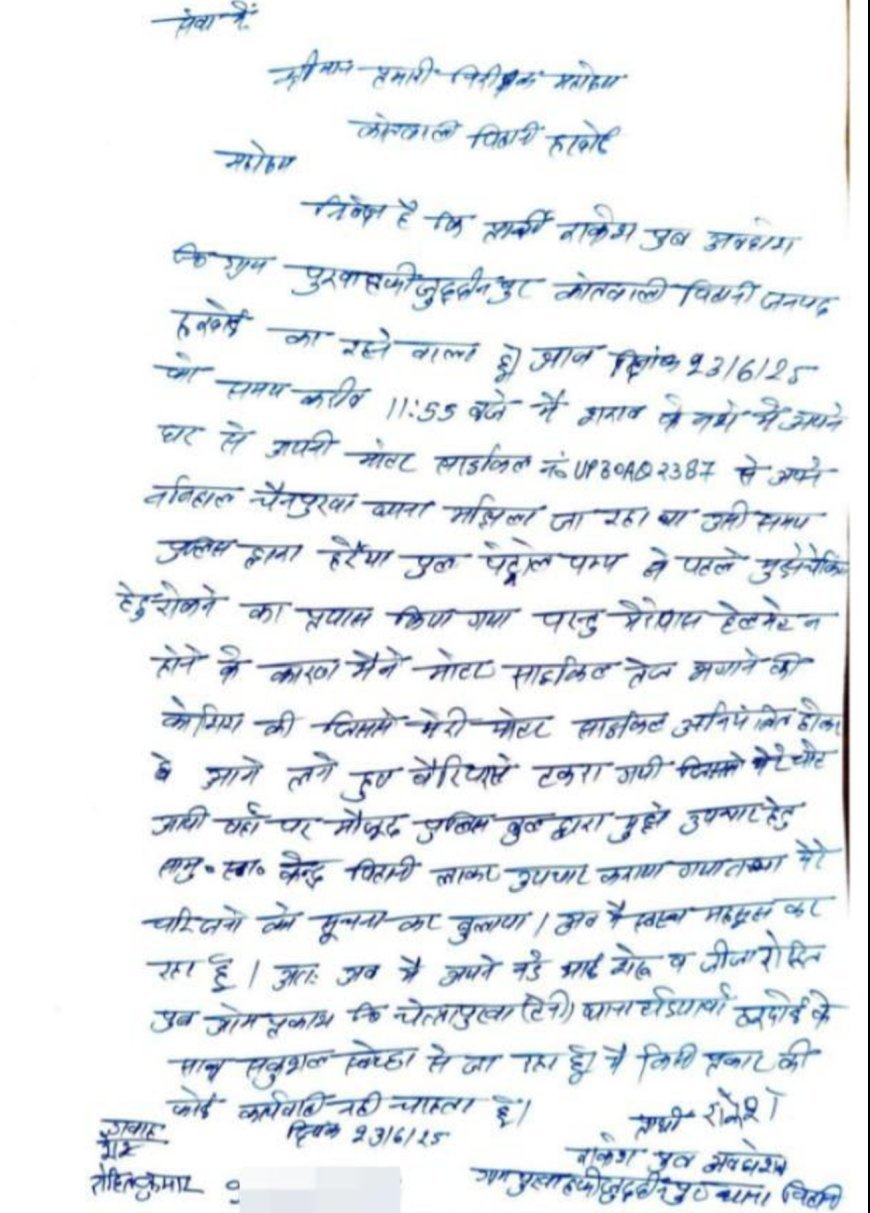 सेवा में
श्रीमान प्रभारी निरीक्षक महोदय
कोतवाली पिहानी हरदोई
महोदय
निवेदन है कि प्रार्थी राकेश पुत्र अवधेश
नि० ग्राम पुरवा हफीजुद्दीनपुर कोतवाली पिहानी जनपद
हरदोई का रहने वाला हूँ। आज दिनांक 23/6/25
को समय करीब 11:55 बजे मैं शराब के नशे में अपने
घर से अपनी मोटर साईकिल नं० UP30AQ2387 से अपने
ननिहाल चैनपुरवा थाना मझिला जा रहा था उसी समय
पुलिस द्वारा हरैया पुल पेट्रोल पम्प से पहले मुझे चेकिंग
हेतु रोकने का प्रयास किया गया परन्तु मेरे पास हेलमेट न
होने के कारण मैने मोटर साईकिल तेज भगाने की
कोशिश की जिससे मेरी मोटर साईकिल अनियंत्रित होकर
आगे लगे हुए बैरियर से टकरा गयी जिससे मेरे चोट
आयी वहाँ पर मौजूद पुलिस बल द्वारा मुझे उपचार हेतु
सामु० स्वा० केन्द्र पिहानी लाकर उपचार कराया गया तथा मेरे
परिजनो को सूचना कर बुलाया। अब मै स्वस्थ महसूस कर
रहा हूँ। अतः अब मै अपने बड़े भाई व जीजा रोहित
पुत्र ओमप्रकाश नि० थाना हरदोई के
साथ सकुशल स्वेच्छा से जा रहा हूँ। मै किसी प्रकार की
कोई कार्यवाही नही चाहता हूँ।
दिनांक 23/6/25
प्रार्थी राकेश
राकेश पुत्र अवधेश
ग्राम पुरवा हफीजुद्दीनपुर थाना पिहानी
गवाह
रोहित कुमार